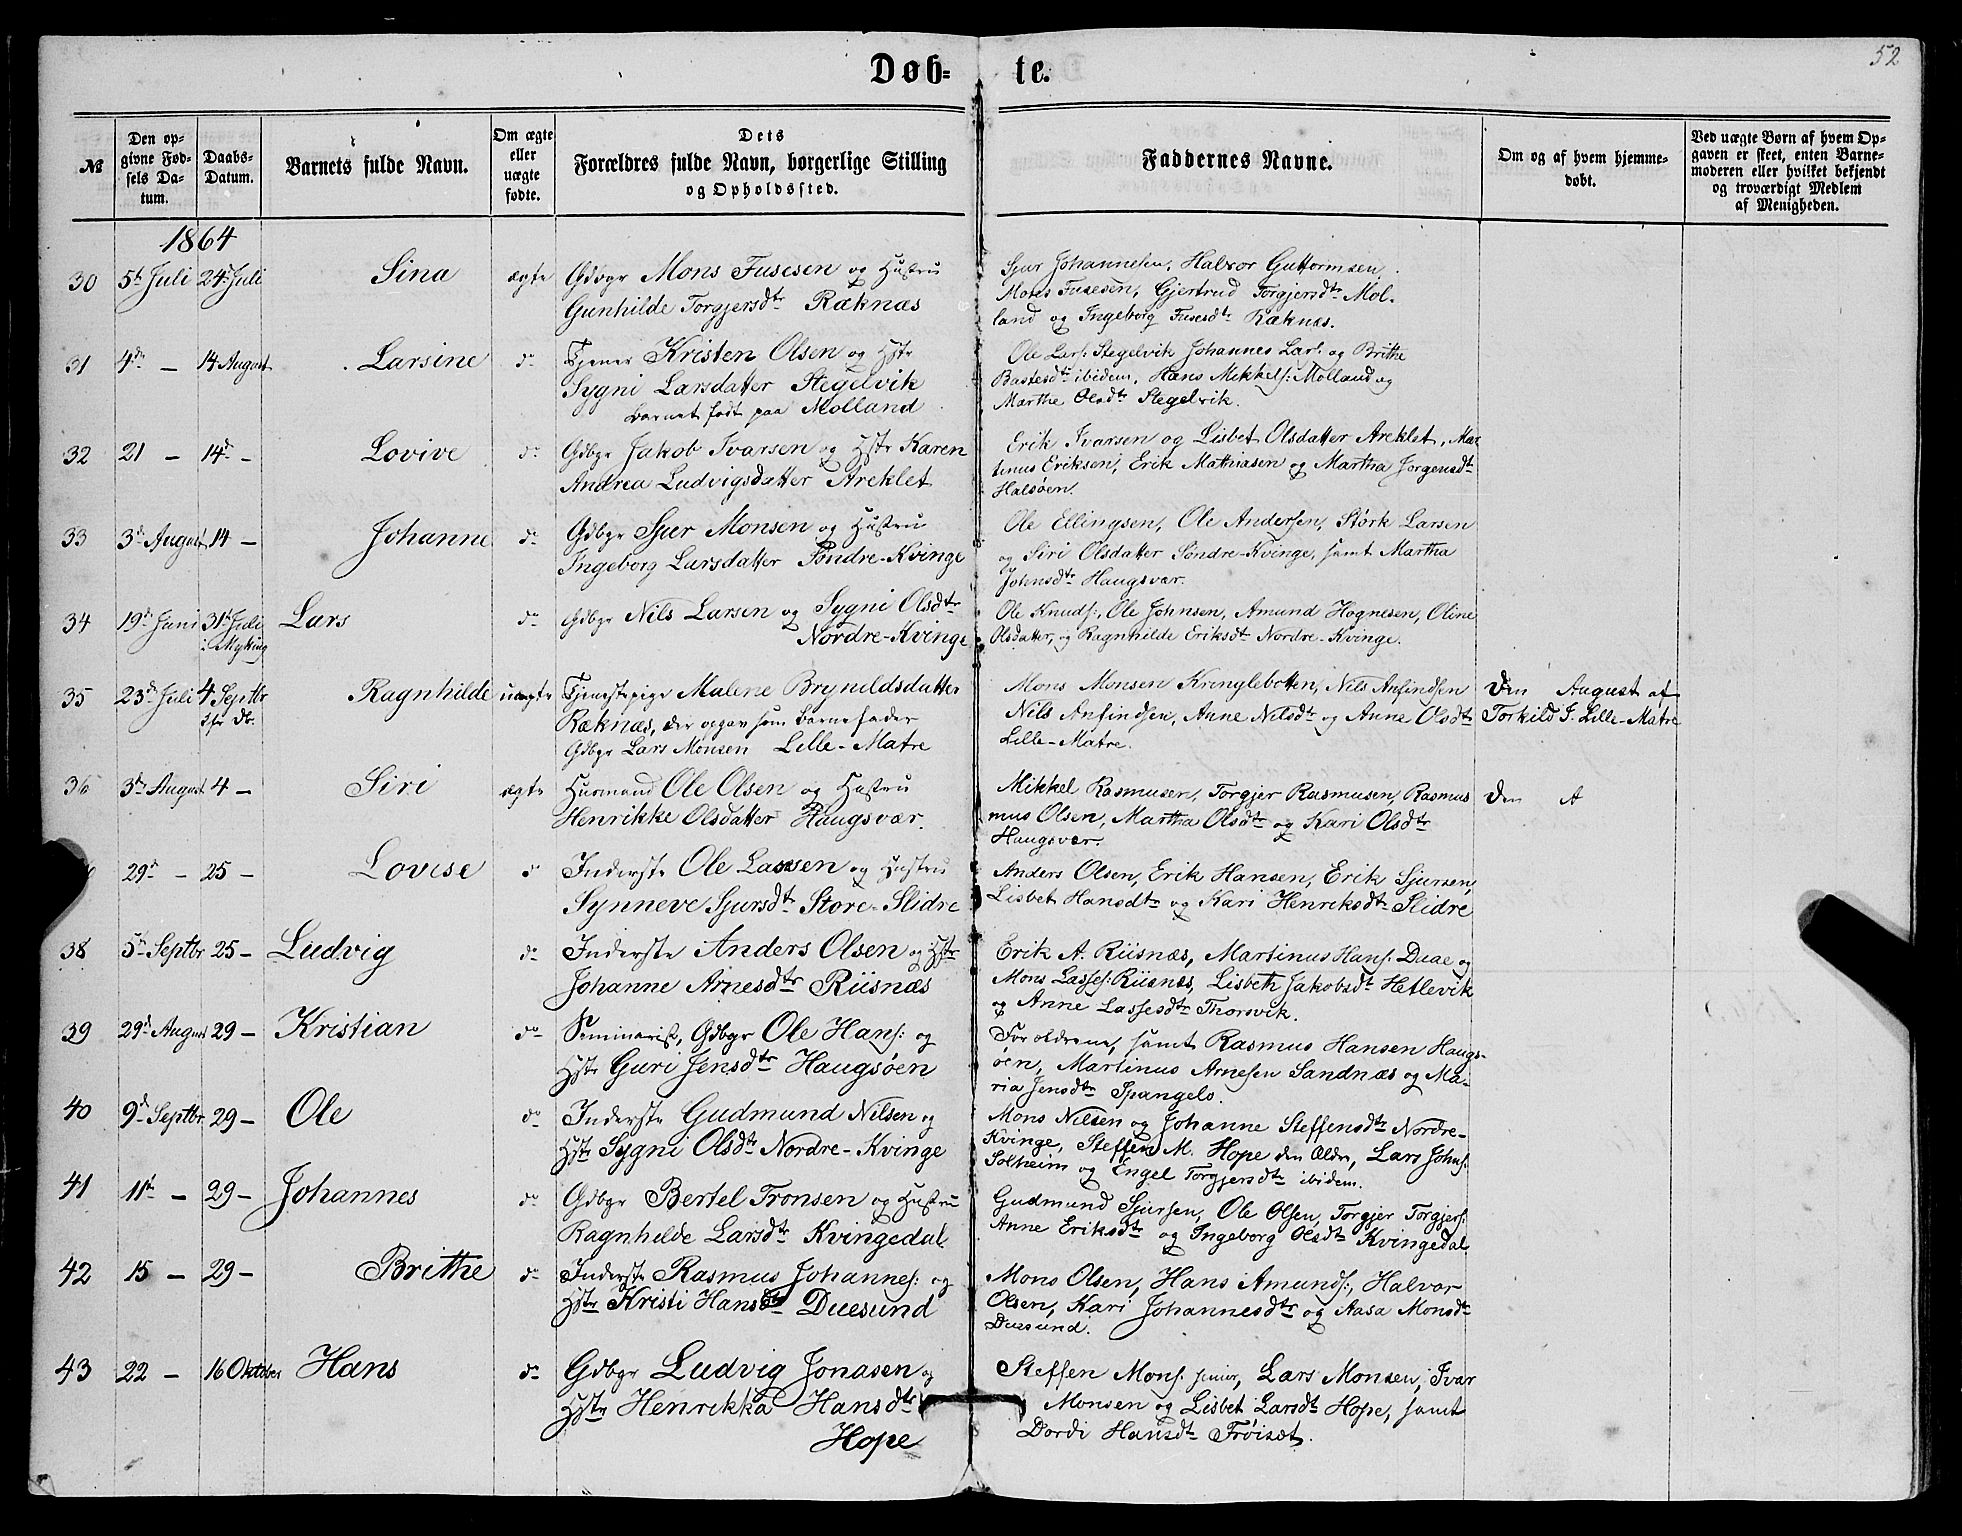 Døb- te.
52
№
Den op-
givne Fød-
sels Da-
tum.
Daabs-
Datum.
Barnets fulde Navn.
Om ægte
eller
uægte
fødte.
Dets
Forældres fulde Navn, borgerlige Stilling
og Opholdssted.
Faddernes Navne.
Om og af hvem hjemme-
døbt.
Ved uægte Børn af hvem Op-
gaven er skeet, enten Barne-
moderen eller hvilket bekjendt
og troværdigt Medlem
af Menigheden.
1864
30 5te Juli 24de Juli Sina ægte Gdbgr Mons Fusesen og Hustru
Gunhilde Torgjersdtr Ræknæs
Sjur Johannesen, Halvor Guttormsen
Mons Fusesen, Gjertrud Torgjersdtr Mol-
land og Ingeborg Fusesdtr Ræknæs.
31 4de - 14 August Larsine do Tjener Kristen Olsen og Hstr
Sygni Larsdatter Stegelvik
Barnet født paa Molland
Ole Lars: Stegelvik Johannes Lars: og Brithe
Bastesdtr ibidem, Hans Mikkels: Molland og
Marthe Olsdtr Stegelvik.
32 21 - 14de - Lovive do Gdbgr Jakob Ivarsen og Hstr Karen
Andrea Ludvigsdatter Areklet
Erik Ivarsen og Lisbet Olsdatter Areklet, Mar
tinus Eriksen, Erik Mathiasen og Martha Jørgensdtr
Halsøen.
33 3de August 14 - Johanne do Gdbgr Sjur Monsen og Hustru
Ingeborg Larsdatter Søndre-Kvinge
Ole Ellingsen, Ole Andersen, Størk Larsen
og Siri Olsdatter Søndre-Kvinge, samt Martha
Johnsdtr Haugsvær.
34 19de Juni 31te Juli
i Mykting
Lars do Gdbgr Nils Larsen og Sygni Olsdtr
Nordre-Kvinge
Ole Knuds:, Ole Johnsen, Amund Hognesen, Oline
Olsdatter, og Ragnhilde Eriksdtr Nordre-Kvinge.
35 23de Juli 4 Septbr
Ragnhilde uægte Tjenestepige Malene Brynildsdatter
Ræknæs, der opgav som Barnefader
Gdbgr Lars Monsen Lille-Matre
Mons Monsen Kringlebotten, Nils Anfindsen
Nils Anfindsen, Anne Nilsdtr og Anne Olsdtr
Lille-Matre.
Den August af
Torkild J. Lille-Matre
36 3de August 4 - Siri ægte Husmand Ole Olsen og Hustru
Henrikke Olsdatter Haugsvær.
Mikkel Rasmusen, Torgjer Rasmusen, Rasmus
mus Olsen, Martha Olsdtr og Kari Olsdtr
Haugsvær.
Den A
29de - 25 - Lovise Inderste Ole Lassen og Hustru
Synneve Sjursdtr Store-Slidre
Anders Olsen, Erik Hansen, Erik Sjursen,
Lisbet Hansdtr og Kari Henriksdtr Slidre
38 5te Septbr 25 - Ludvig do Inderste Anders Olsen og Hstr
Johanne Arnesdtr Riisnæs
Erik A. Riisnæs, Martinus Hans: Duae og
Mons Lasses: Riisnæs, Lisbeth Jakobsdtr Hetlevik
og Anne Lassesdtr Thorsvik.
39 29de August 29 - Kristian do Seminarist, Gdbgr Ole Hans: og
Hstr Guri Jensdtr Haugsøen
Forældrene, samt Rasmus Hansen Haugs-
øen, Martinus Arnesen Sandnæs og Ma-
ria Jensdtr Spangelo.
40 9de Septbr 29 - Ole do Inderste Gudmund Nilsen og
Hstr Sygni Olsdtr Nordre-Kvinge
Mons Nilsen og Johanne Steffensdtr Nordre-
Kvinge, Steffen M. Hope den Eldre, Lars Johns:
Solheim og Engel Torgjersdtr ibidem.
41 11te - 29 - Johannes do Gdbgr Bertel Tronsen og Hustru
Ragnhilde Larsdtr Kvingedal.
Gudmund Sjursen, Ole Olsen, Torgjer Torgjers:
Anne Eriksdtr og Ingeborg Olsdtr Kvingedal
42 15 - 29 - Brithe do Inderste Rasmus Johannes: og
Hstr Kristi Hansdtr Duesund
Mons Olsen, Hans Amunds:, Halvor
Olsen, Kari Johannesdtr og Aasa Monsdtr
Duesund.
43 22 - 16 Oktober Hans do Gdbgr Ludvig Jonasen og
Hstr Henrikka Hansdtr
Hope
Steffen Mons: junior, Lars Monsen, Ivar
Monsen og Lisbet Larsdtr Hope, samt
Dordi Hansdtr Frøiset.